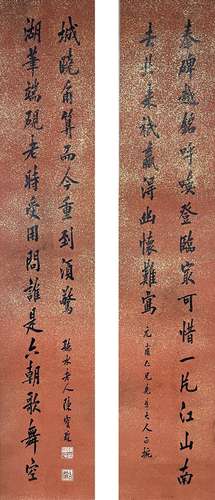 秦碑越銘呼喚登臨最可惜一片江山南
去北來贏得幽懷難寫
仁兄先生大人正
湖筆端硯老時愛用問誰是六朝歌舞空
城曉角算而今重到須驚
聽水老人陳寶琛